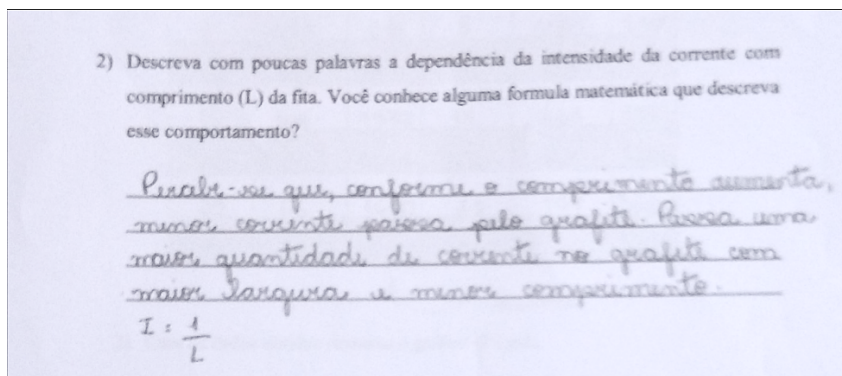 2) Descreva com poucas palavras a dependência da intensidade da corrente com
comprimento (L) da fita. Você conhece alguma formula matemática que descreva
esse comportamento?
Percebe-se que, conforme o comprimento aumenta,
menor corrente passa pelo grafite. Passa uma
maior quantidade de corrente no grafite com
maior largura e menor comprimento.
I = 1
L